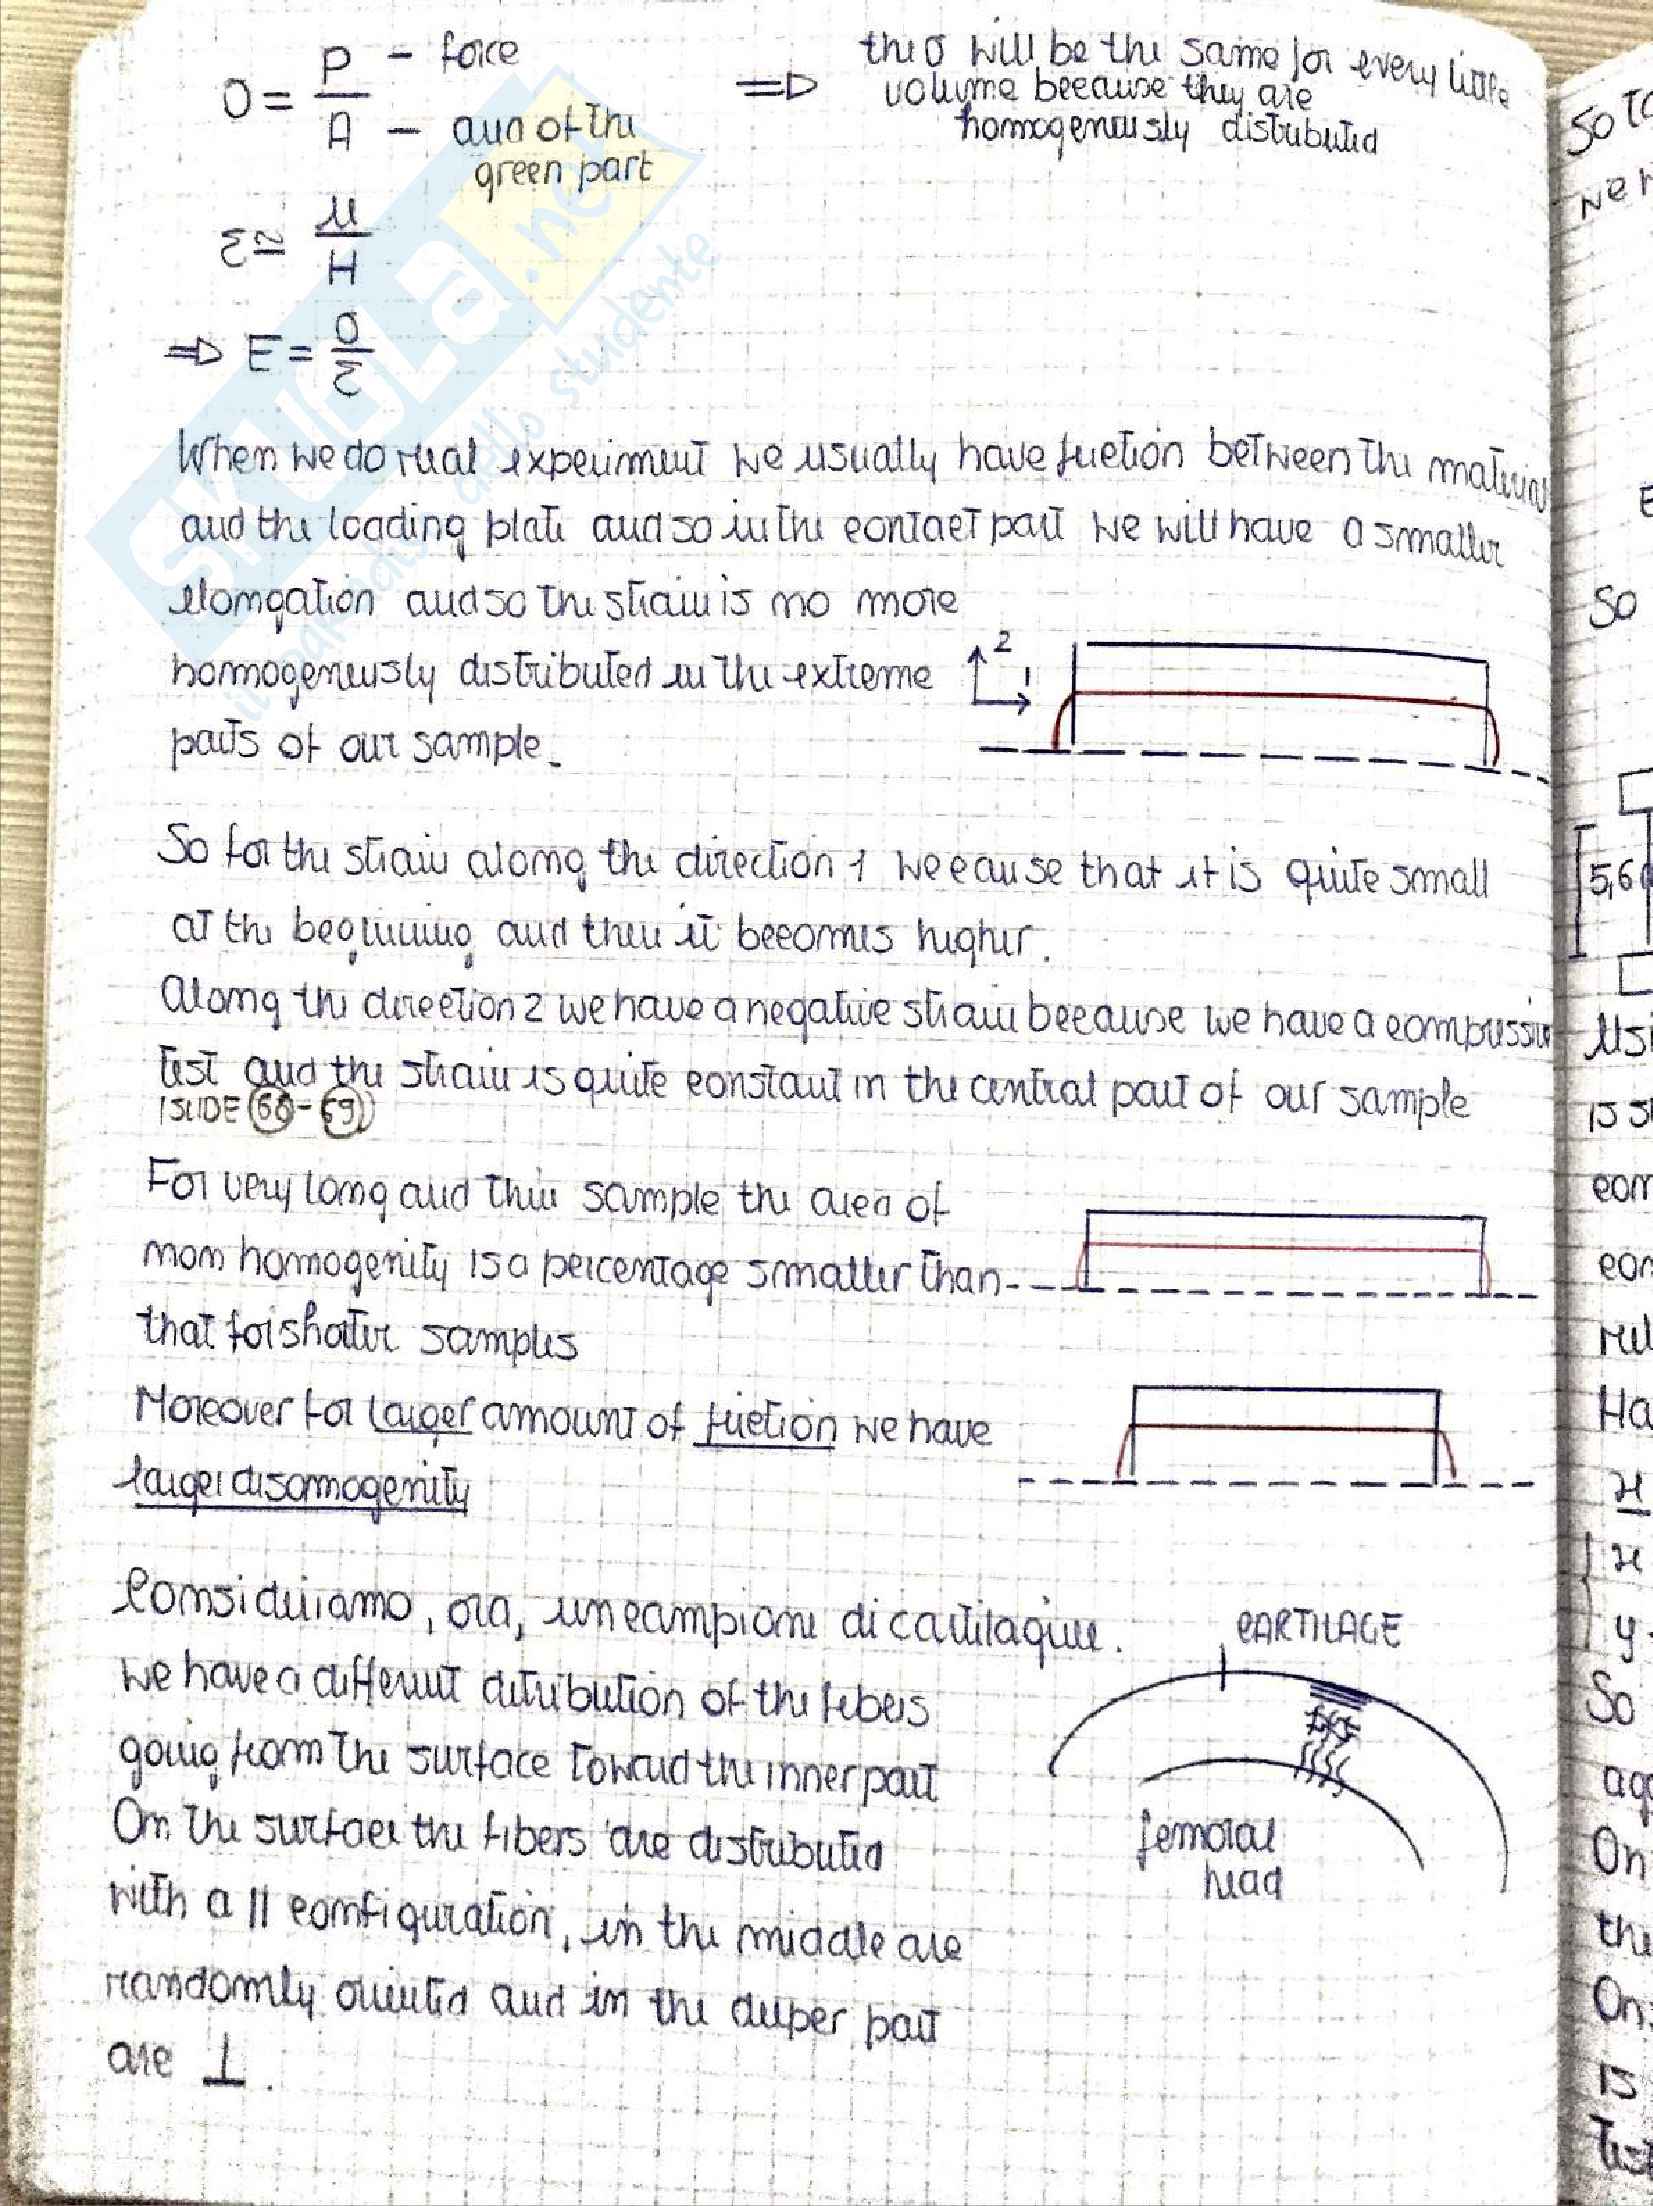 σ = P/A - force
- area of the
green part
⇒ the σ will be the same for every little
volume because they are
homogeneusly distributed
ε ≃ u/H
⇒ E = σ/ε
When we do real experiment we usually have friction between the material
and the loading plate and so in the contact part we will have a smaller
elongation and so the strain is no more
homogeneusly distributed in the extreme
parts of our sample.
2
1
So for the strain along the direction 1 we that it is quite small
at the beginning and then it becomes higher.
Along the direction 2 we have a negative strain because we have a compressive
test and the strain is quite constant in the central part of our sample
(SLIDE 68-69)
For very long and thin sample the area of
non homogenity is a percentage smatter than
that for shorter samples
Moreover for larger amount of friction we have
larger disomogenity
Consideriamo, ora, un campione di cartilagine.
CARTILAGE
we have a different ditribution of the fibers
going from the surface toward the inner part
On the surface the fibers are distributed
with a || configuration, in the middle are
randomly oriented and in the deeper part
are ⊥.
femoral
head
SKUOLA.net
il paradiso dello studente
So
5,6
So
On
On
is